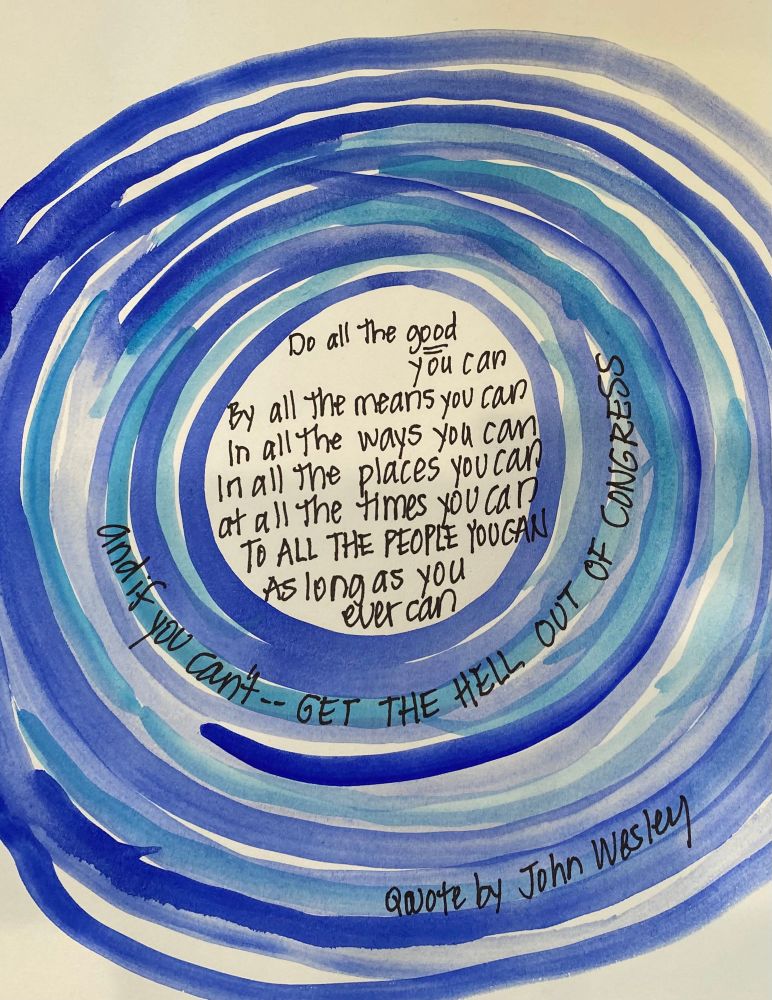 Do all the good
you can
By all the means you can
In all the ways you can
In all the places you can
at all the times you can
TO ALL THE PEOPLE YOU CAN
As long as you
ever can
and if you can't -- GET THE HELL OUT OF CONGRESS
Quote by John Wesley